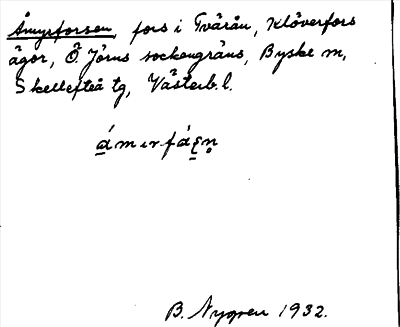 Åmyrforsen, fors i Tvärån, Klöverfors
ägor, Ö. Jörns sockengräns, Byske sn,
Skellefteå tg, Västerb. l.
B. Nygren 1932.